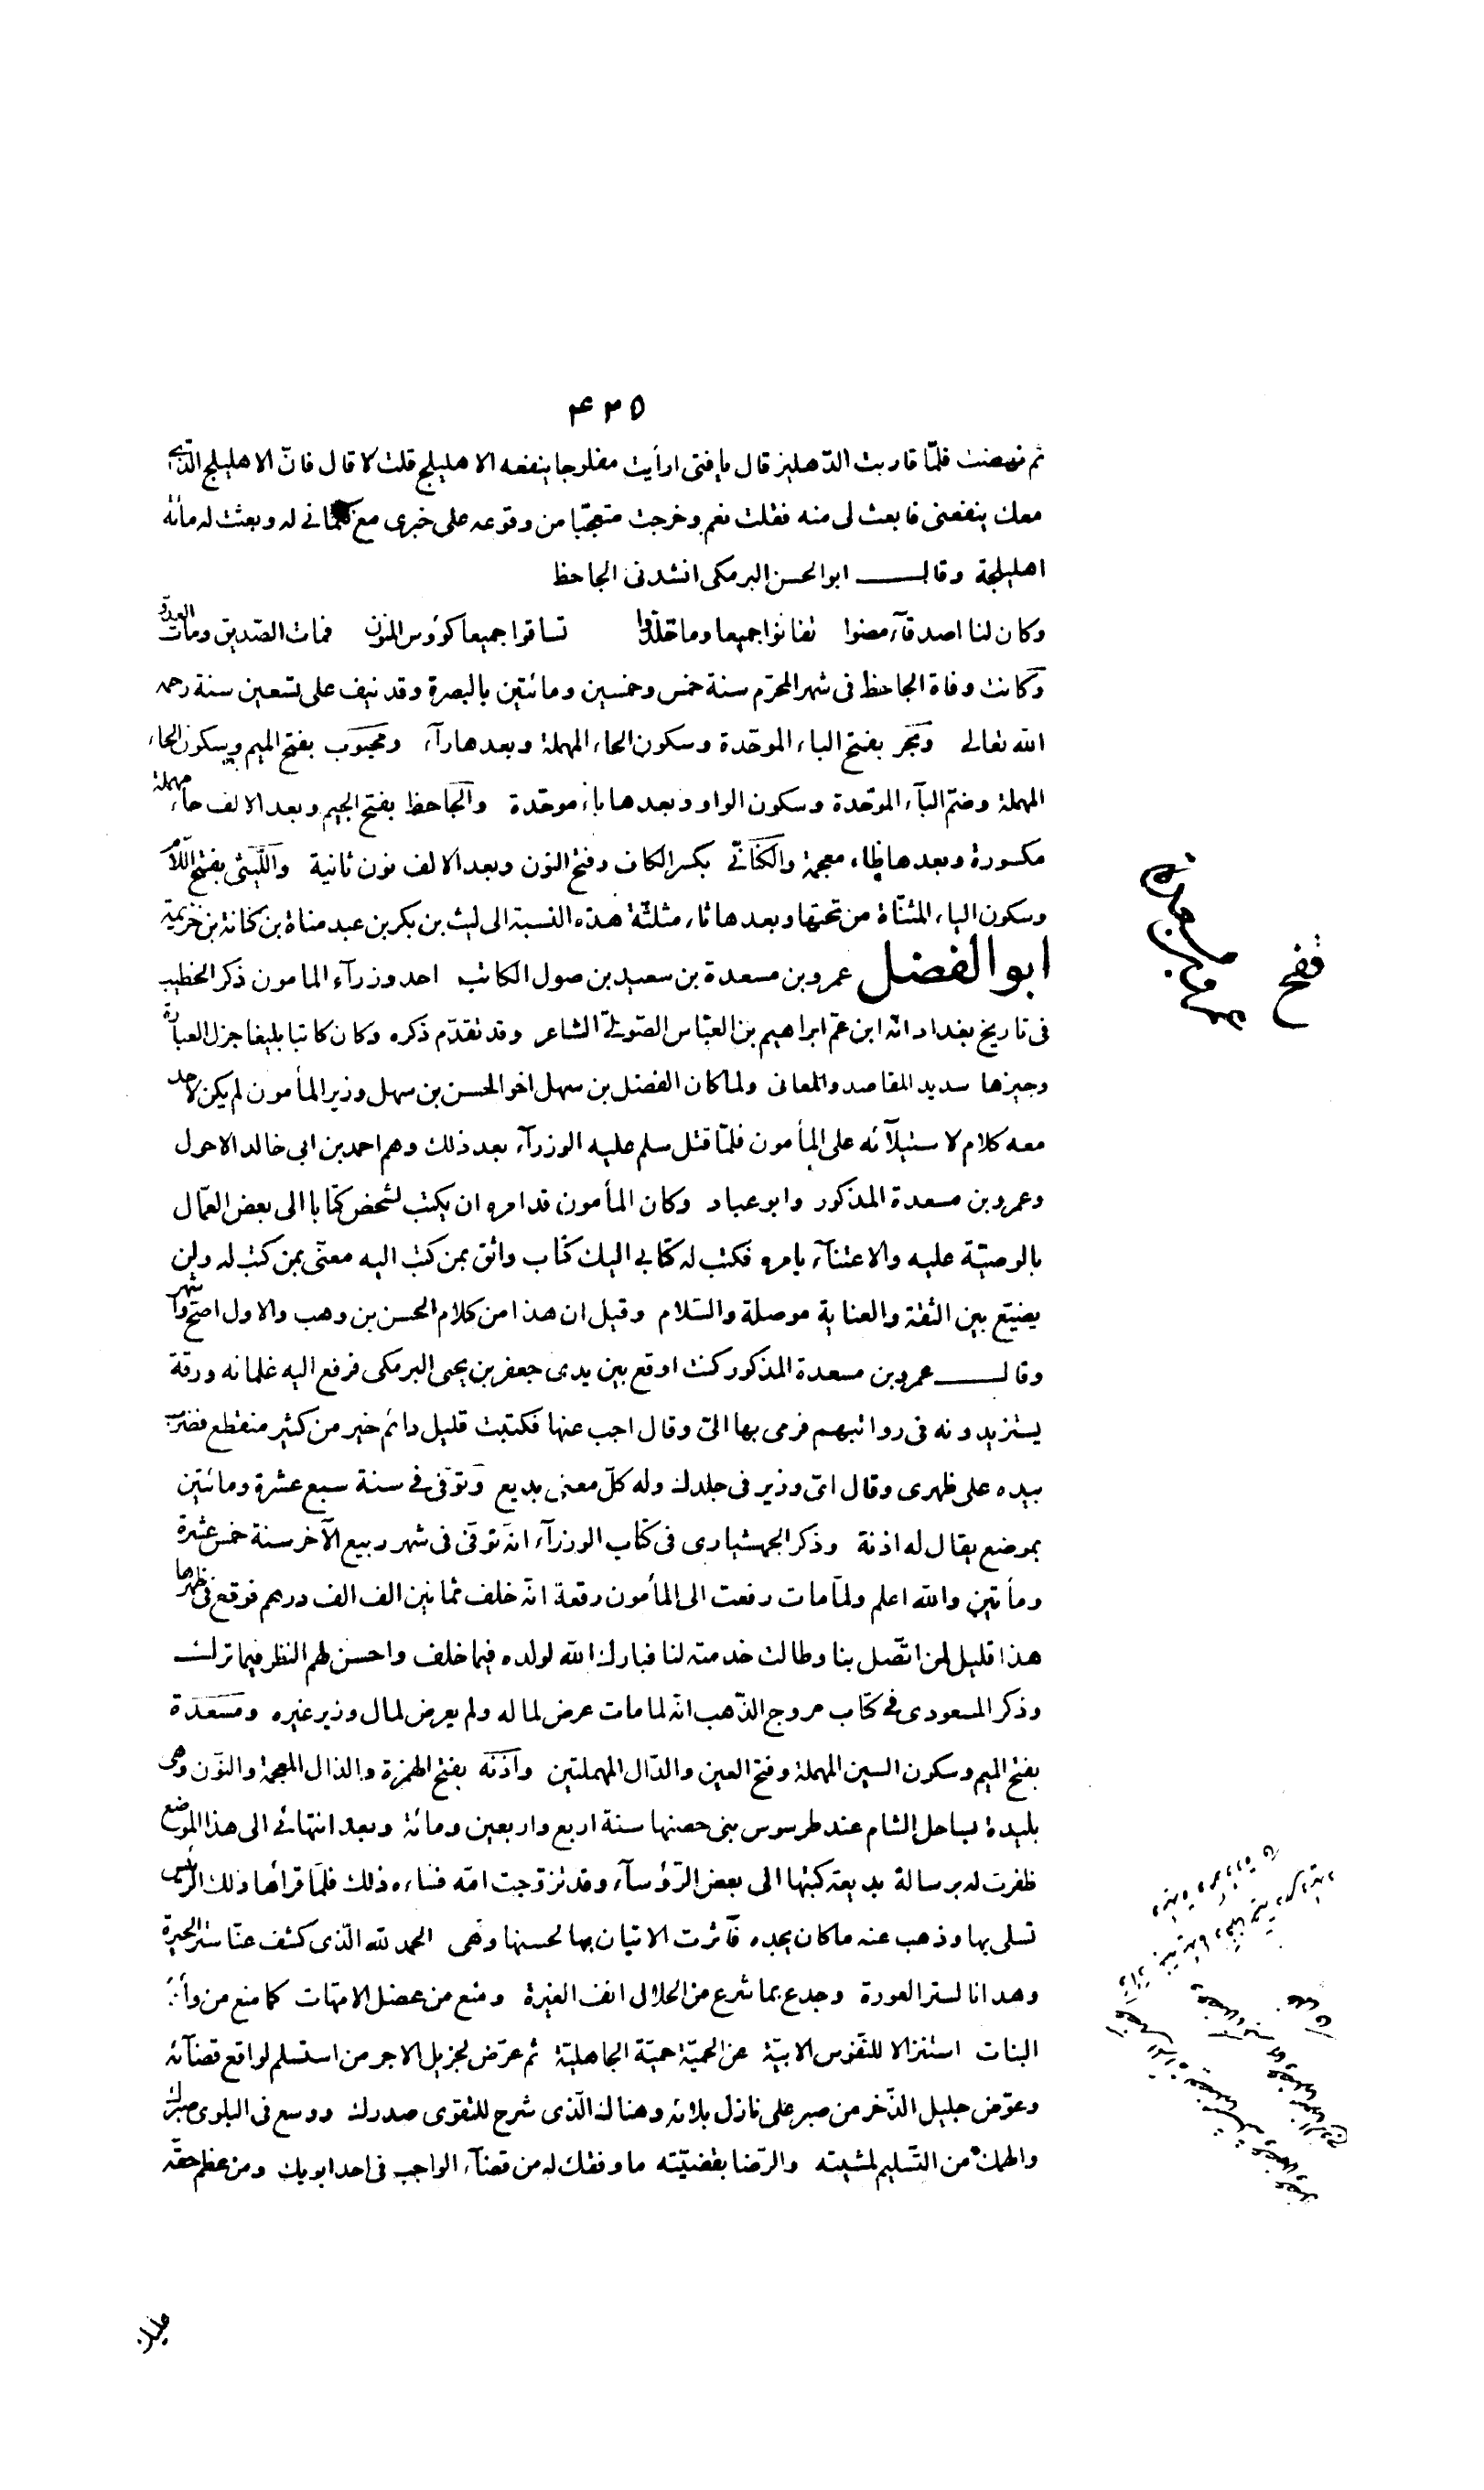 ۴۳۵
ثم نهضت فلمّا قاربت الدّهليز قال يا فتى ارأيت مفلوجا ينفعه الاهليلج قلت لا قال فانّ الاهليلج الذى
معك ينفعنى فابعث لى منه فقلت نعم وخرجت متعجّبا من وقوعه على خبرى مع كتمانى له وبعثت له مائة
اهليلجة وقال ابو الحسن البرمكى انشدنى الجاحظ
وكان لنا اصدقآء مضوا تفانوا جميعا وما خلّدوا تساقوا جميعا كؤوس المنون فمات الصّديق ومات العدوّ
وكانت وفاة الجاحظ فى شهر المحرّم سنة خمس وخمسين ومائتين بالبصرة وقد نيف على تسعين سنة رحمه
الله تعالى وبَحر بفتح الباء الموحّدة وسكون الحاء المهملة وبعدها رآء ومحبوب بفتح الميم وسكون الحاء
المهملة وضمّ البآء الموحّدة وسكون الواو وبعدها باء موحّدة والجاحظ بفتح الجيم وبعد الالف حاء مهملة
مكسورة وبعدها ظاء معجمة والكنانّى بكسر الكاف وفتح النون وبعد الالف نون ثانية واللّيثى بفتح اللّام
وسكون الياء المثنّاة من تحتها وبعدها ثاء مثلثّة هذه النسبة الى ليث بن بكر بن عبد مناة بن كنانة بن خزيمة
ابو الفضل عمرو بن مسعدة بن سعيد بن صول الكاتب احد وزرآء المامون ذكر الخطيب
فى تاريخ بغداد انّه ابن عمّ ابراهيم بن العبّاس الصّولىّ الشاعر وقد تقدّم ذكره وكان كاتبا بليغا جزل العبارة
وجيزها سديد المقاصد والمعانى ولما كان الفضل بن سهل اخو الحسن بن سهل وزير المأمون لم يكن لاحد
معه كلام لاستيلآئه على المأمون فلمّا قتل سلم عليه الوزرآء بعد ذلك وهم احمد بن ابى خالد الاحول
وعمرو بن مسعدة المذكور وابو عباد وكان المأمون قد امره ان يكتب لشخص كتابا الى بعض العمّال
بالوصيّة عليه والاعتنآء بامره فكتب له كتابى اليك كتاب واثق بمن كتب اليه معنّى بمن كتب له ولن
يضيّع بين الثقة والعناية موصلة والسّلام وقيل ان هذا من كلام الحسن بن وهب والاول اصحّ واشهر
وقال عمرو بن مسعدة المذكور كنت اوقع بين يدى جعفر بن يحيى البرمكى فرفع اليه غلمانه ورقة
يستزيدونه فى رواتبهم فرمى بها الىّ وقال اجب عنها فكتبت قليل دائم خير من كثير منقطع فضرب
بيده على ظهرى وقال اىّ وزير فى جلدك وله كلّ معنى بديع وتوفّى فى سنة سبع عشرة ومائتين
بموضع يقال له اذنة وذكر الجهشيارى فى كتاب الوزرآء انّه توفّى فى شهر ربيع الآخر سنة خمس عشرة
ومأتين والله اعلم ولمّا مات رفعت الى المأمون رقعة انّه خلف ثمانين الف الف درهم فوقع فى ظهرها
هذا قليل لمن اتّصل بنا وطالت خدمته لنا فبارك الله لولده فيما خلف واحسن لهم النظر فيما ترك
وذكر المسعودى فى كتاب مروج الذّهب انّه لما مات عرض لماله ولم يعرض لمال وزير غيره ومسعدة
بفتح الميم وسكون السين المهملة وفتح العين والدّال المهملتين واذنه بفتح الهمزة والذال المعجمة والنّون وهى
بليدة بساحل الشام عند طرسوس بنى حصنها سنة اربع واربعين ومائة وبعد انتهائى الى هذا الموضع
ظفرت له برسالة بديعة كتبها الى بعض الرّؤسآء وقد تزوّجت امّه فساءه ذلك فلمّا قرأها ذلك الرئيس
تسلى بها وذهب عنه ما كان يجده فآثرت الاتيان بها لحسنها وهى الحمد لله الّذى كشف عنّا ستر الحيرة
وهدانا لستر العورة وجدع بما شرع من الحلال انف الغيرة ومنع من عضل الامّهات كما منع من وأد
البنات استنزالا للنّفوس الابيّة عن الحميّة حميّة الجاهليّة ثم عرّض لجزيل الاجر من استسلم لواقع قضآئه
وعوّض جليل الذّخر من صبر على نازل بلائه وهناك الّذى شرح للتقوى صدرك ووسع فى البلوى صبرك
والهمك من التّسليم لمشيته والرّضا بقضيّته ما وفقك له من قضآء الواجب فى احد ابويك ومن عظم حقّه
عمرو بن مسعدة
عليك